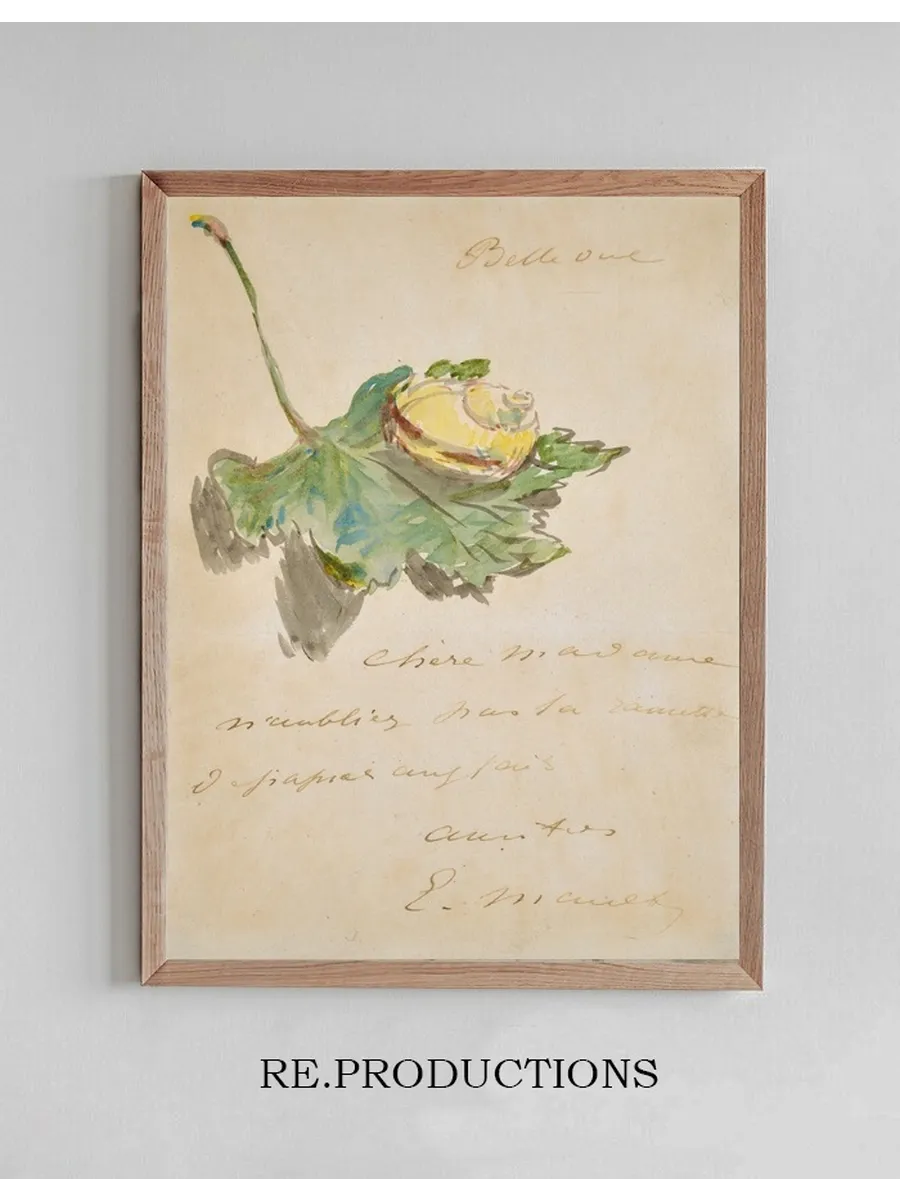 Bellevue
chère madame
n'oubliez pas la
de papier anglais
E. Manet
RE.PRODUCTIONS